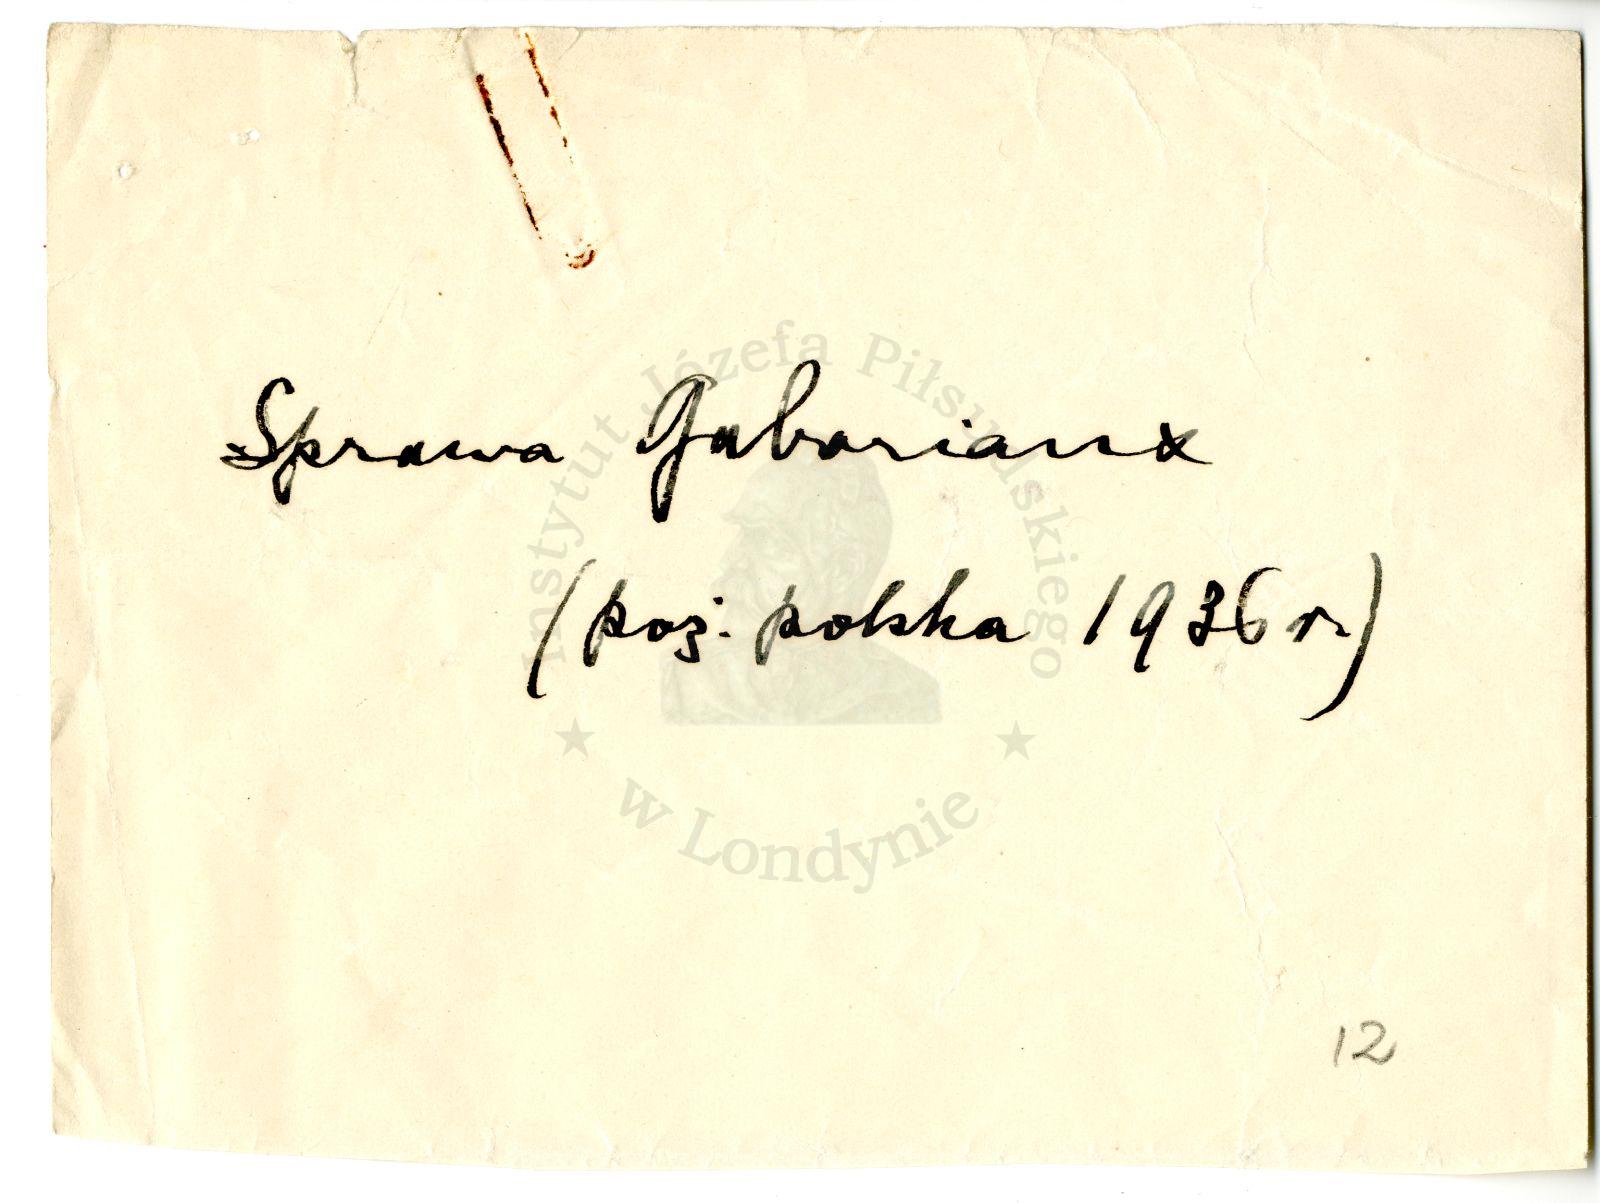 Sprawa Gaboriaux
(poż. polska 1936 r.)
12
Instytut Józefa Piłsudskiego
w Londynie